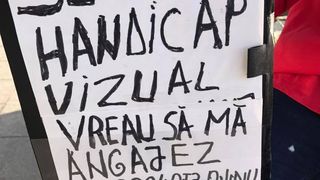 HANDICAP
VIZUAL
VREAU SĂ MĂ
ANGAJEZ